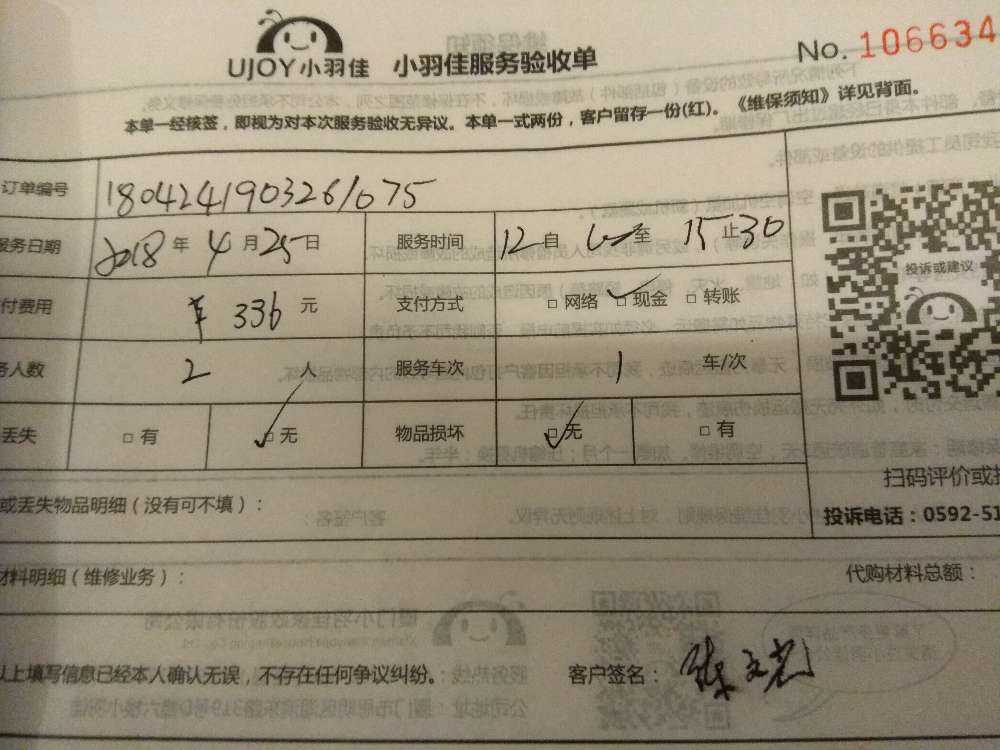 UJOY小羽佳 小羽佳服务验收单
No. 106634
本单一经核签，即视为对本次服务验收无异议。本单一式两份，客户留存一份(红)。《维保须知》详见背面。
订单编号 180424190326/075
服务日期 2018 年 4 月 25 日 服务时间 12 自 至 15 止 30
付费用 ¥ 336 元 支付方式 □ 网络 □ 现金 □ 转账
务人数 2 人 服务车次 1 车/次
丢失 □ 有 □ 无 物品损坏 □ 无 □ 有
投诉或建议
扫码评价或
或丢失物品明细（没有可不填）：
投诉电话：0592-51
材料明细（维修业务）： 代购材料总额：
以上填写信息已经本人确认无误，不存在任何争议纠纷。 客户签名：